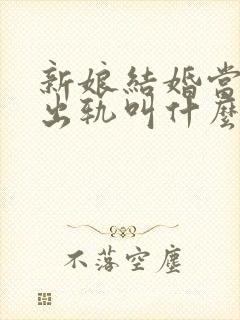 新娘結婚當
出軌叫什麼
不落空塵